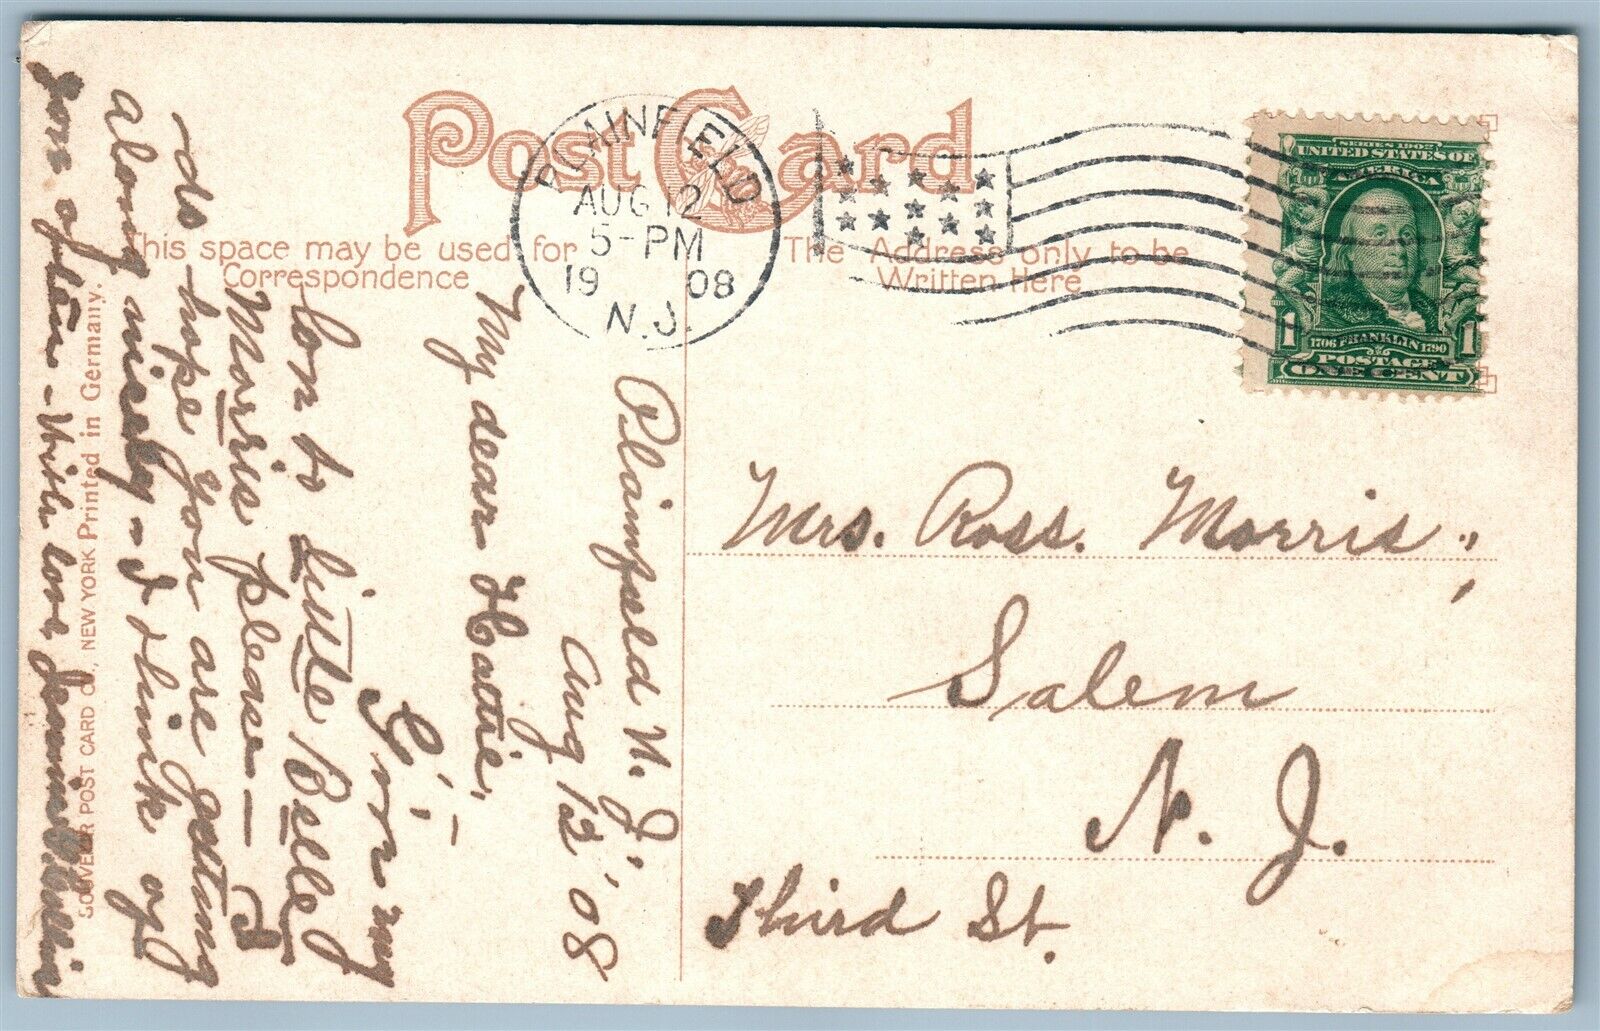 Post Card
PLAINFIELD
AUG 12
5-PM
1908
N.J.
This space may be used for
Correspondence
The Address only to be
Written Here
SERIES 1902
UNITED STATES OF
AMERICA
1 1
1706 FRANKLIN 1790
POSTAGE
ONE CENT
Plainfield N. J.
Aug 12 '08
My dear Hattie,
Give my
love to Little Belle
Morris please - I
do hope you are getting
along nicely - I think of
you often - With love Jennie
SOUVENIR POST CARD CO., NEW YORK Printed in Germany.
Mrs. Ross. Morris,
Salem
N. J.
Third St.